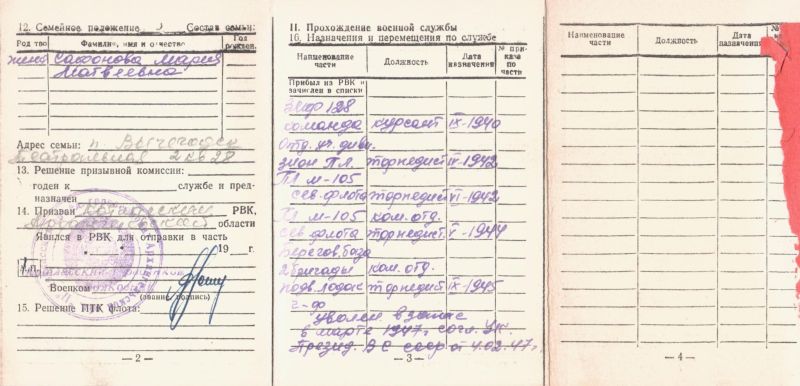 12. Семейное положение Состав семьи:
Род тво Фамилия, имя и отчество Год рожден.
жена Сафонова Мария
Матвеевна
Адрес семьи: п Вычегодск
Театральная 2 кв 28
13. Решение призывной комиссии:
годен к службе и пред-
назначен
14. Призван Котласским РВК,
Архангельской области
Явился в РВК для отправки в часть
19 г.
Военком
(звание подпись)
15. Решение ПТК флота:
— 2 —
II. Прохождение военной службы
16. Назначения и перемещения по службе
Наименование части Должность Дата назначения № приказа по части
Прибыл из РВК и
зачислен в списки
128
команда курсант IX-1940
Отд. уч. диви-
зион ПЛ. торпедист IV-1942
ПЛ М-105
сев. флота торпедист VI-1942
ПЛ М-105 ком. отд.
сев. флота торпедист. V-1944
Берегов. база
2 бригады ком. отд.
подв. лодок торпедист IX-1945
уволен в запас
в марте 1947 г. согл. Ук.
Презид. ВС СССР от 4.02.47 г.
— 3 —
Наименование части Должность Дата назначения №
— 4 —